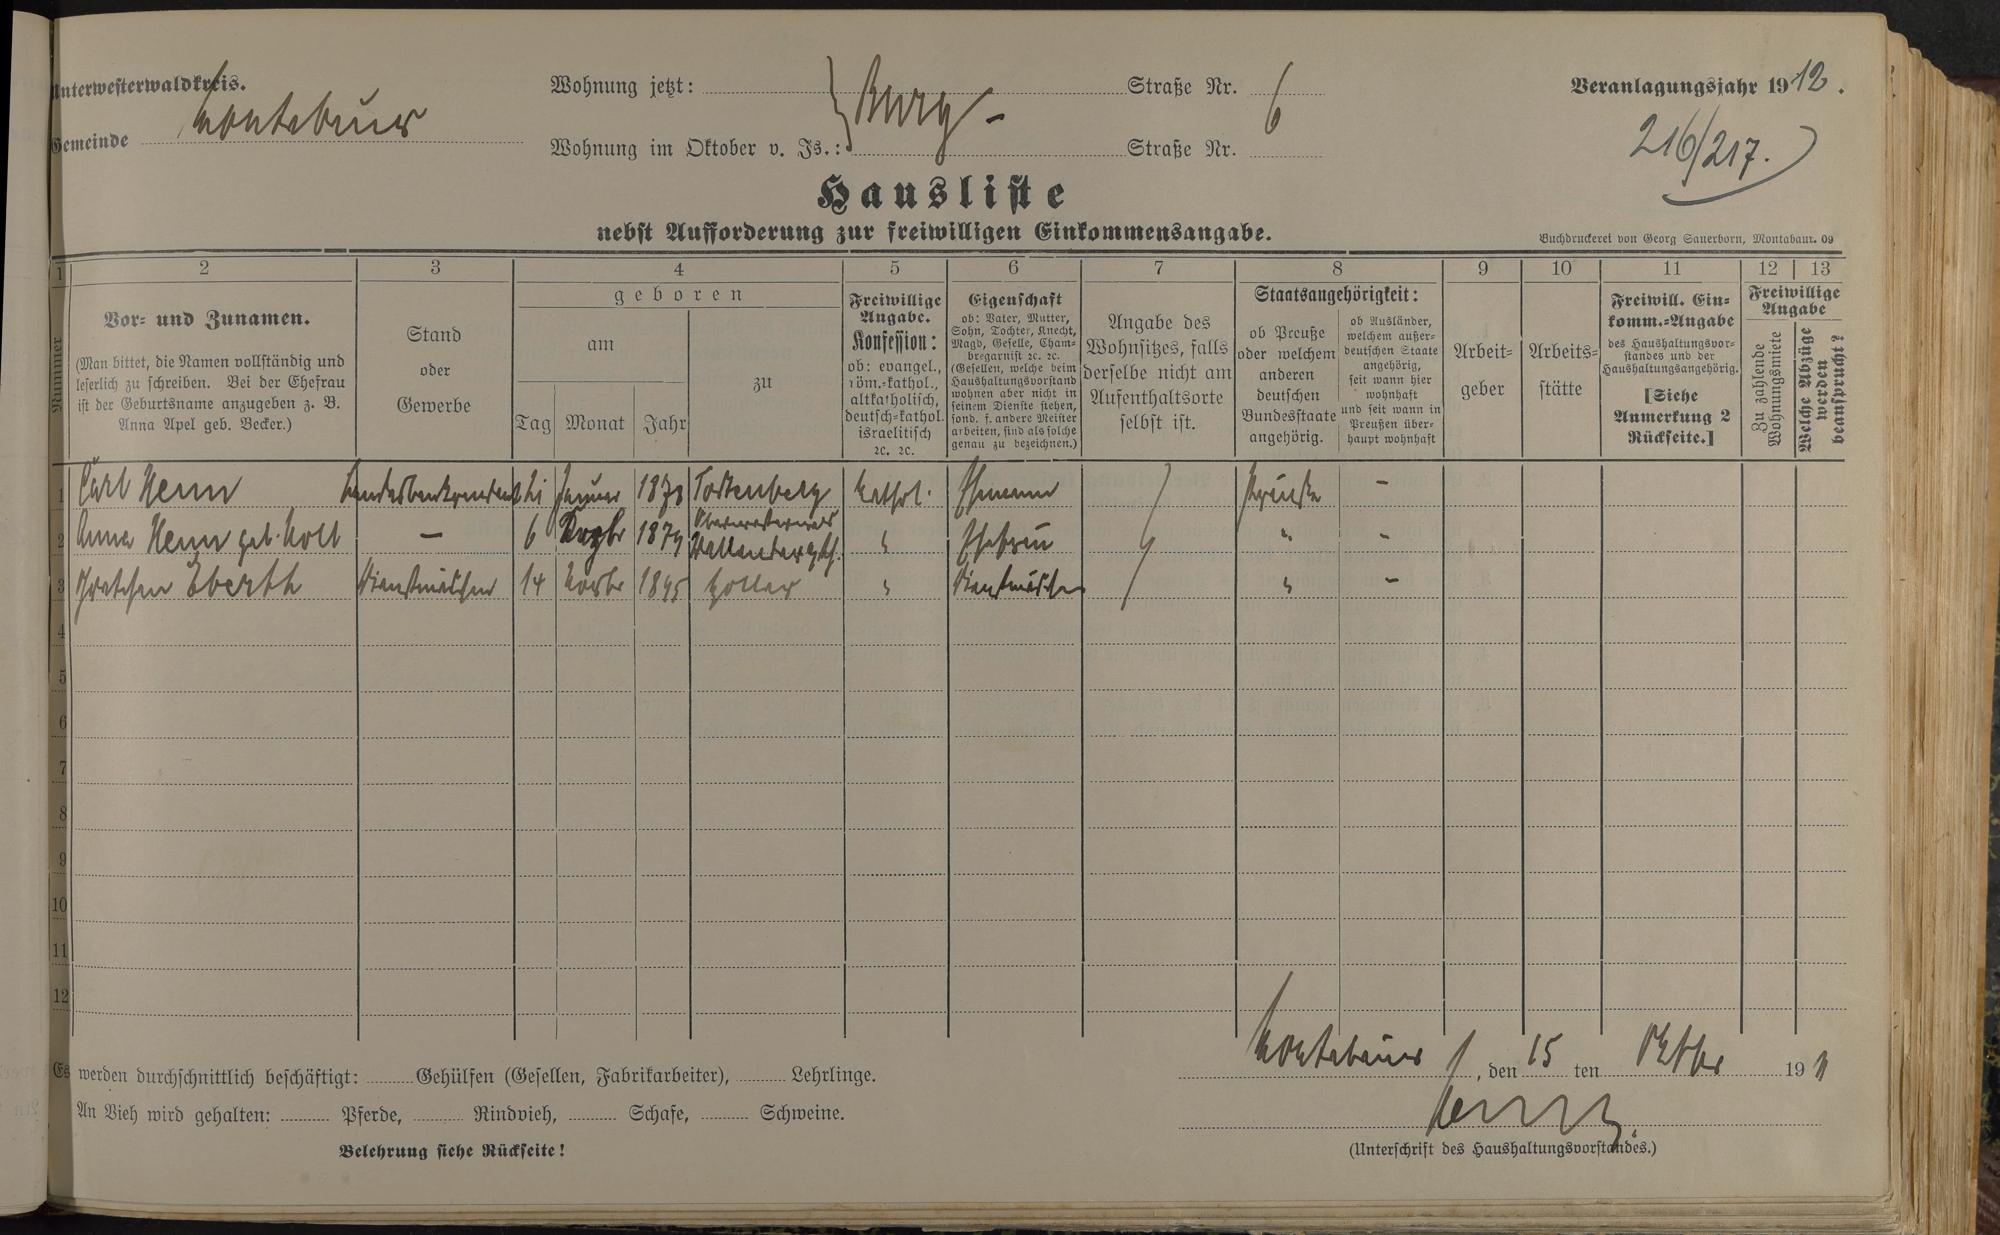 Unterwesterwaldkreis.
Gemeinde Montabaur
Wohnung jetzt: Burg- Straße Nr. 6
Wohnung im Oktober v. Js.: Straße Nr.
Veranlagungsjahr 1912.
216/217.
Hausliste
nebst Aufforderung zur freiwilligen Einkommensangabe.
Buchdruckerei von Georg Sauerborn, Montabaur. 09
1 2 3 4 5 6 7 8 9 10 11 12 13
Nummer
Vor- und Zunamen.
(Man bittet, die Namen vollständig und
leserlich zu schreiben. Bei der Ehefrau
ist der Geburtsname anzugeben z. B.
Anna Apel geb. Becker.)
Stand
oder
Gewerbe
geboren
am
Tag Monat Jahr
zu
Freiwillige
Angabe.
Konfession:
ob: evangel.,
röm.-kathol.,
altkatholisch,
deutsch-kathol.
israelitisch
ꝛc. ꝛc.
Eigenschaft
ob: Vater, Mutter,
Sohn, Tochter, Knecht,
Magd, Geselle, Cham-
bregarnist ꝛc. ꝛc.
(Gesellen, welche beim
Haushaltungsvorstand
wohnen aber nicht in
seinem Dienste stehen,
sond. f. andere Meister
arbeiten, sind als solche
genau zu bezeichnen.)
Angabe des
Wohnsitzes, falls
derselbe nicht am
Aufenthaltsorte
selbst ist.
Staatsangehörigkeit:
ob Preuße
oder welchem
anderen
deutschen
Bundesstaate
angehörig.
ob Ausländer,
welchem außer-
deutschen Staate
angehörig,
seit wann hier
wohnhaft
und seit wann in
Preußen über-
haupt wohnhaft
Arbeit-
geber
Arbeits-
stätte
Freiwill. Ein-
komm.-Angabe
des Haushaltungsvor-
standes und der
Haushaltungsangehörig.
[Siehe
Anmerkung 2
Rückseite.]
Freiwillige
Angabe
Zu zahlende
Wohnungsmiete
Welche Abzüge
werden
beansprucht?
1 Carl Henn Januar 1873 kathol. Ehemann Preuße -
2 Anna Henn geb. — 6 1879 " Ehefrau " -
3 Gretchen Eberth Dienstmädchen 14 Novbr 1895 Holler " Dienstmädchen " -
4
5
6
7
8
9
10
11
12
Es werden durchschnittlich beschäftigt: Gehülfen (Gesellen, Fabrikarbeiter), Lehrlinge.
An Vieh wird gehalten: Pferde, Rindvieh, Schafe, Schweine.
Belehrung siehe Rückseite!
Montabaur, den 15 ten Oktbr 1911
Henn
(Unterschrift des Haushaltungsvorstandes.)